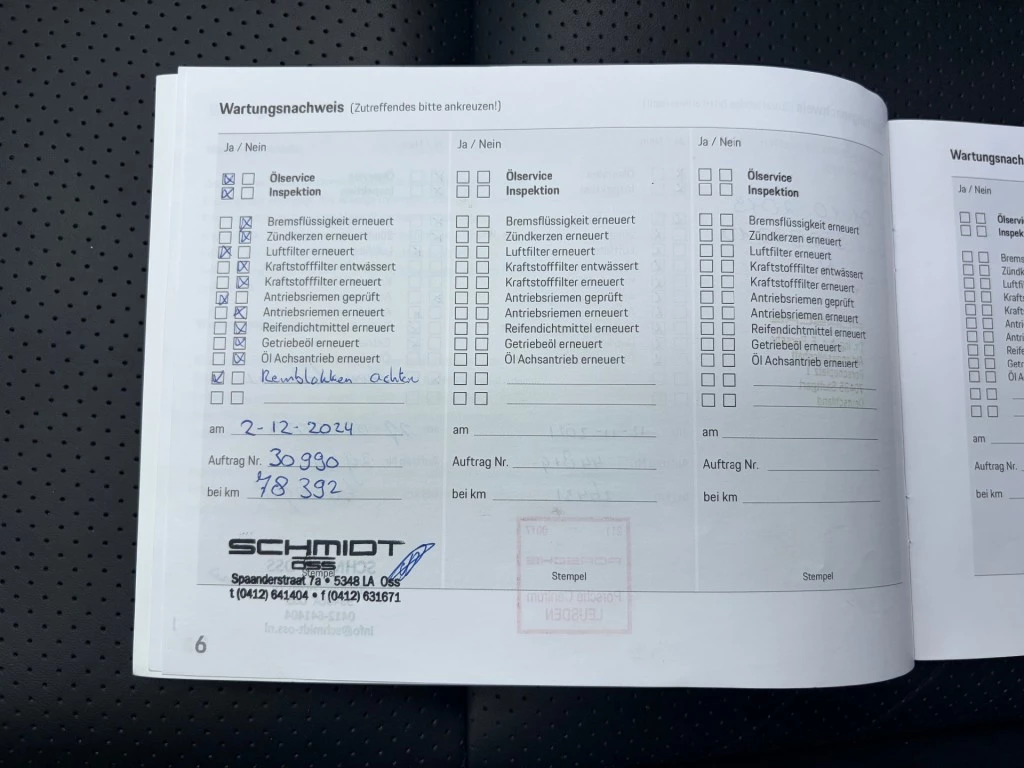 Wartungsnachweis (Zutreffendes bitte ankreuzen!)
Ja / Nein
Ölservice
Inspektion
Bremsflüssigkeit erneuert
Zündkerzen erneuert
Luftfilter erneuert
Kraftstofffilter entwässert
Kraftstofffilter erneuert
Antriebsriemen geprüft
Antriebsriemen erneuert
Reifendichtmittel erneuert
Getriebeöl erneuert
Öl Achsantrieb erneuert
Remblokken achter
am 2-12-2024
Auftrag Nr. 30990
bei km 78 392
SCHMIDT
OSS
Stempel
Spaanderstraat 7a • 5348 LA Oss
t (0412) 641404 • f (0412) 631671
6
Ja / Nein
Ölservice
Inspektion
Bremsflüssigkeit erneuert
Zündkerzen erneuert
Luftfilter erneuert
Kraftstofffilter entwässert
Kraftstofffilter erneuert
Antriebsriemen geprüft
Antriebsriemen erneuert
Reifendichtmittel erneuert
Getriebeöl erneuert
Öl Achsantrieb erneuert
am
Auftrag Nr.
bei km
Stempel
Ja / Nein
Ölservice
Inspektion
Bremsflüssigkeit erneuert
Zündkerzen erneuert
Luftfilter erneuert
Kraftstofffilter entwässert
Kraftstofffilter erneuert
Antriebsriemen geprüft
Antriebsriemen erneuert
Reifendichtmittel erneuert
Getriebeöl erneuert
Öl Achsantrieb erneuert
am
Auftrag Nr.
bei km
Stempel
Wartungsnach
Ja / Nein
Ölservic
Inspek
Brems
Zündk
Luftfi
Kraft
Kraft
Antri
Antri
Reife
Getr
Öl A
am
Auftrag Nr.
bei km